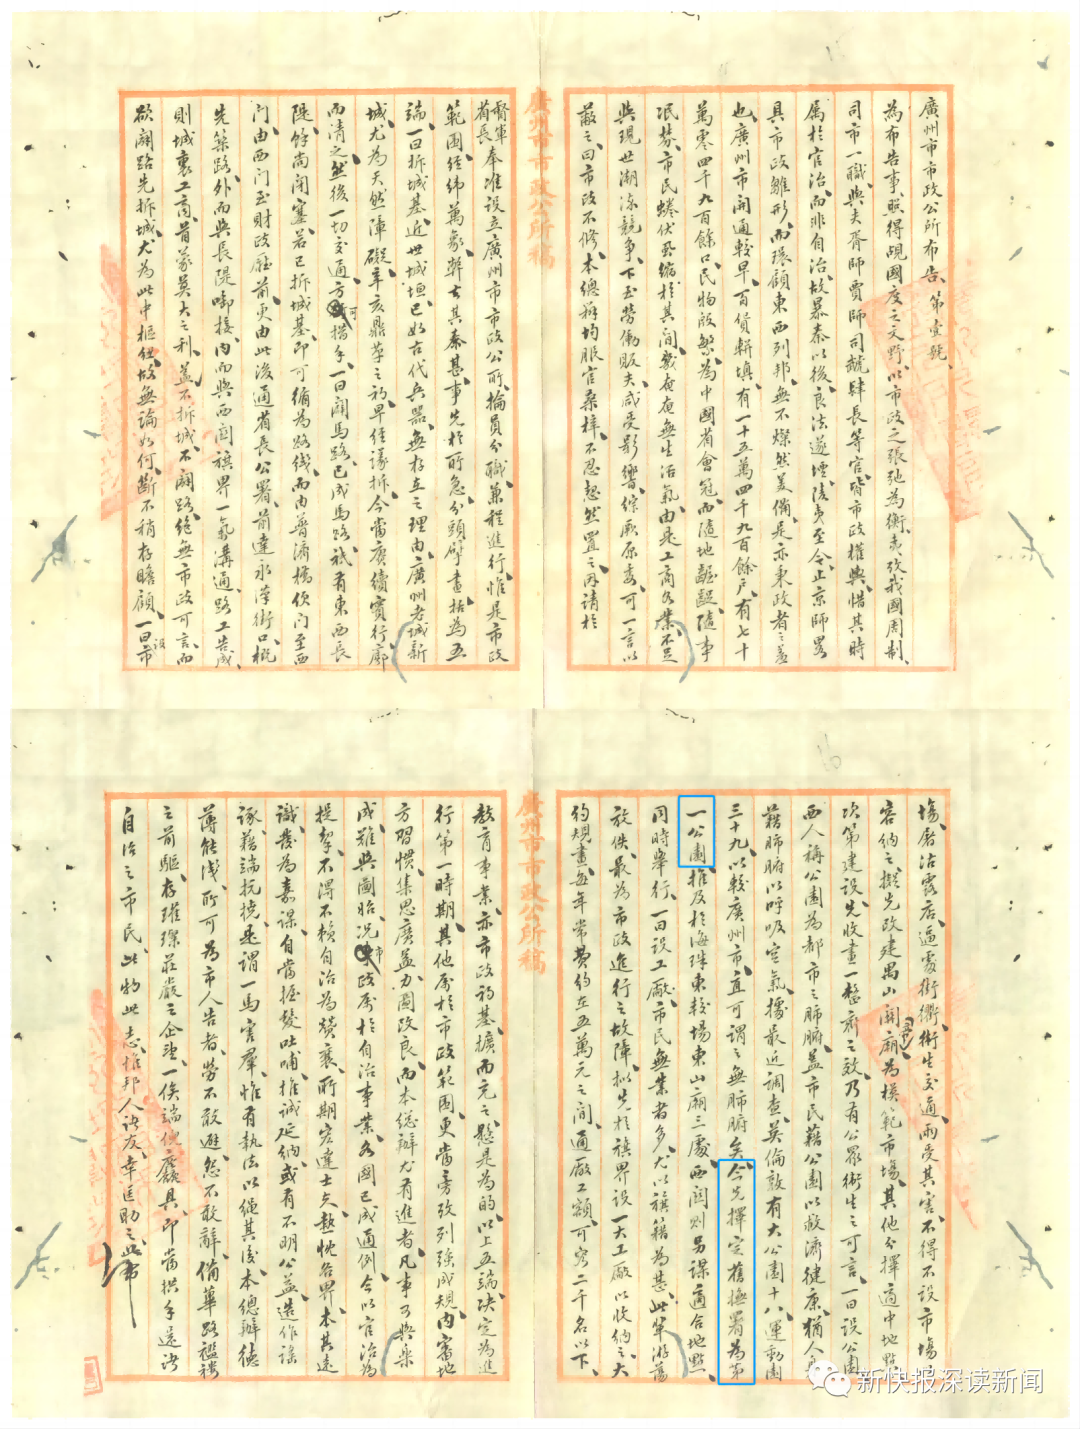 廣州市市政公所布告、第壹號、
為布告事照得覘國度之文野、以市政之張弛為衡、攷我國周制、
司市一職、與夫胥師賈師司虣肆長等官、皆市政權輿、惜其時
屬於官治、而非自治、故暴秦以後、良法遂堙、陵夷至今、止京師畧
具市政雛形、而環顧東西列邦、無不燦然美備、是亦秉政者之羞
也、廣州市開通較早、百貨駢填、有一十五萬四千九百餘戶、有七十
萬零四千九百餘口、民物殷繁、為中國省會冠、而隨地齷齪、隨事
泯棼、市民蜷伏亟縮於其間、奄奄無生活氣、由是工商各業、不足
與現世潮流競爭、下至勞働販夫、咸受影響、綜厥原委、可一言以
蔽之曰市政不修、本總辦均服官桑梓、不忍恝然置之、爰請於
廣州市市政公所稿
督軍
省長奉准設立廣州市市政公所、掄員分職、兼程進行、惟是市政
範圍、經緯萬彖、舉其甚事、先於所急、分頭擘畫、括為五
端、一曰拆城基、近世城垣、已如古代兵器、無存立之理由、廣州老城新
城、尤為天然障礙、辛亥鼎革之初、早經議拆、今當賡續實行、廓
而清之、然後一切交通、方可措手、一曰闢馬路、已成馬路、祗有東西長
隄、餘尚閉塞、若已拆城基、即可循為路綫、而由普濟橋依門至西
門、由西門至財政廳前、更由此後通省長公署、前達永漢街口、概
先築路、外而與長隄啣接、內而與西關旗界一氣溝通、路工告成、
則城裏工商、首蒙莫大之利、蓋不拆城、不闢路、絕無市政可言、而
欲闢路先拆城、尤為此中樞紐、故無論如何、斷不稍存瞻顧、一曰設市
場、屠沽露店、逼處街衢、衛生交通、兩受其害、不得不設市場以
容納之、擬先改建禺山關帝廟為模範市場、其他分擇適中地點
次第建設、先收畫一整齊之效、乃有公眾衛生之可言、一曰設公園
西人稱公園為都市之肺腑、蓋市民藉公園以救濟健康、猶人身
藉肺腑以呼吸空氣、據最近調查、英倫敦有大公園十八、運動園
三十九、以較廣州市、直可謂之無肺腑矣、今先擇定舊撫署為第
一公園、推及於海珠東較場東山廟三處、西關則另謀適合地點、
同時舉行、一曰設工廠、市民無業者多、尤以旗籍為甚、此輩游蕩
放佚、最為市政進行之故障、擬先於旗界設一大工廠以收納之、大
約規畫、每年常費約在五萬元之間、通廠工額、可容二千名以下、
廣州市市政公所稿
教育事業、亦市政初基、擴而充之、懸是為的、以上五端、決定為進
行第一時期、其他屬於市政範圍、更當旁攷列強成規、內審地
方習慣、集思廣益、力圖改良、而本總辦尤有進者、凡事可與樂
成、難與圖始、況市政屬於自治事業、各國已成通例、今以官治為
提挈、不得不賴自治為贊襄、所期宏達士夫、熱忱各界、本其遠
識、發為嘉謀、自當握髮吐哺、推誠延納、或有不明公益、造作謠
諑、藉端抗撓、是謂一馬害羣、惟有執法以繩其後、本總辦德
薄能淺、所可為市人告者、勞不敢避、怨不敢辭、備蓽路襤褸
之前驅、存璀璨莊嚴之企望、一俟端倪麤具、即當拱手還諸
自治之市民、此物此志、惟邦人諸友、幸匡助之、此布
新快报深读新闻